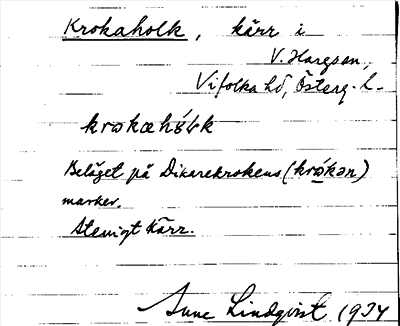 Krokaholk, kärr i
V. Hargsen,
Vifolka hd, Österg. l.
Beläget på Dikarekrokens (krὼkən)
marker.
Stenigt kärr.
Sune Lindqvist 1934